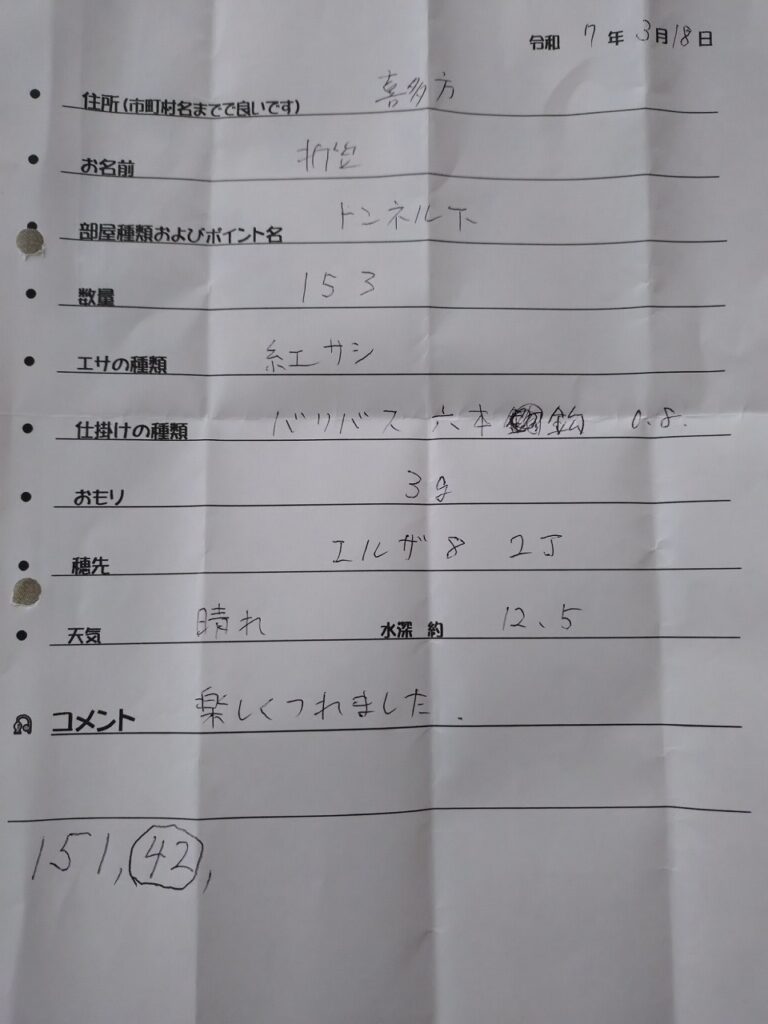 令和 7 年 3月18日
住所(市町村名までで良いです) 喜多方
お名前 折笠
部屋種類およびポイント名 トンネル下
数量 153
エサの種類 紅サシ
仕掛けの種類 バリバス 六本 鈎 0.8.
おもり 3g
穂先 エルザ8 2丁
天気 晴れ 水深 約 12、5
コメント 楽しくつれました.
151, 42,